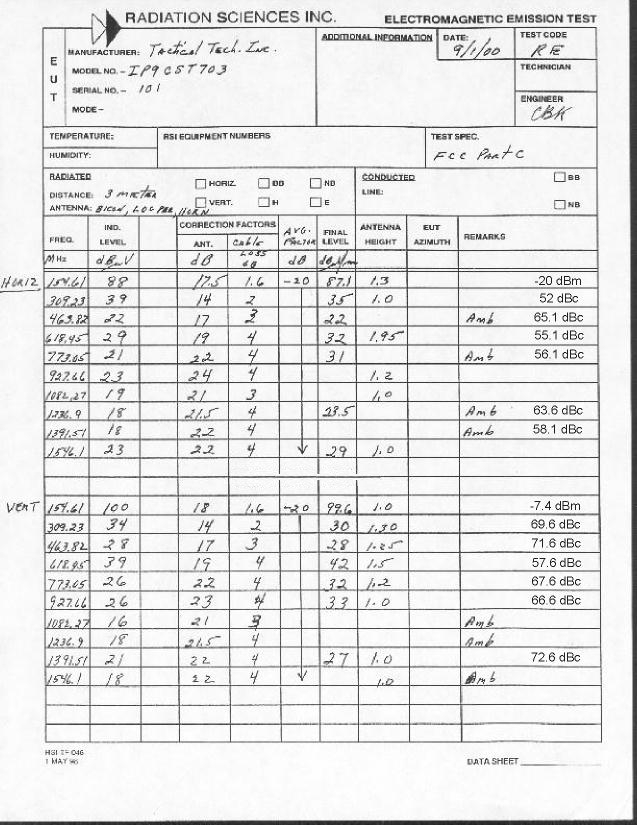 RADIATION SCIENCES INC. ELECTROMAGNETIC EMISSION TEST
EUT
MANUFACTURER: Tactical Tech. Inc.
MODEL NO. - IP9CST703
SERIAL NO. - 101
MODE -
ADDITIONAL INFORMATION
DATE: 9/1/00
TEST CODE
RE
TECHNICIAN
ENGINEER
CBK
TEMPERATURE:
HUMIDITY:
RSI EQUIPMENT NUMBERS
TEST SPEC.
FCC Part C
RADIATED
DISTANCE: 3 meter
ANTENNA: BICON, LOG PER, HORN
HORIZ. BB NB
VERT. H E
CONDUCTED
LINE:
BB
NB
FREQ. IND. LEVEL CORRECTION FACTORS ANT. Cable LOSS AVG. FACTOR FINAL LEVEL ANTENNA HEIGHT EUT AZIMUTH REMARKS
MHz dBuV dB dB dB dBuV/m
HORIZ 154.61 88 17.5 1.6 -20 87.1 1.3 -20 dBm
309.23 39 14 2 35 1.0 52 dBc
463.82 22 17 3 22 Amb 65.1 dBc
618.45 29 19 4 32 1.95 55.1 dBc
773.05 21 22 4 31 Amb 56.1 dBc
927.66 23 24 4 1.2
1082.27 19 21 3 1.0
1236.9 18 21.5 4 23.5 Amb 63.6 dBc
1391.51 18 22 4 Amb 58.1 dBc
1546.1 23 22 4 29 1.0
VERT 154.61 100 18 1.6 -20 99.6 1.0 -7.4 dBm
309.23 34 14 2 30 1.30 69.6 dBc
463.82 28 17 3 28 1.25 71.6 dBc
618.45 39 19 4 42 1.5 57.6 dBc
773.05 26 22 4 32 1.2 67.6 dBc
927.66 26 23 4 33 1.0 66.6 dBc
1082.27 16 21 3 Amb
1236.9 18 21.5 4 Amb
1391.51 21 22 4 27 1.0 72.6 dBc
1546.1 18 22 4 1.0 Amb
RSI TF 046
1 MAY 96
DATA SHEET